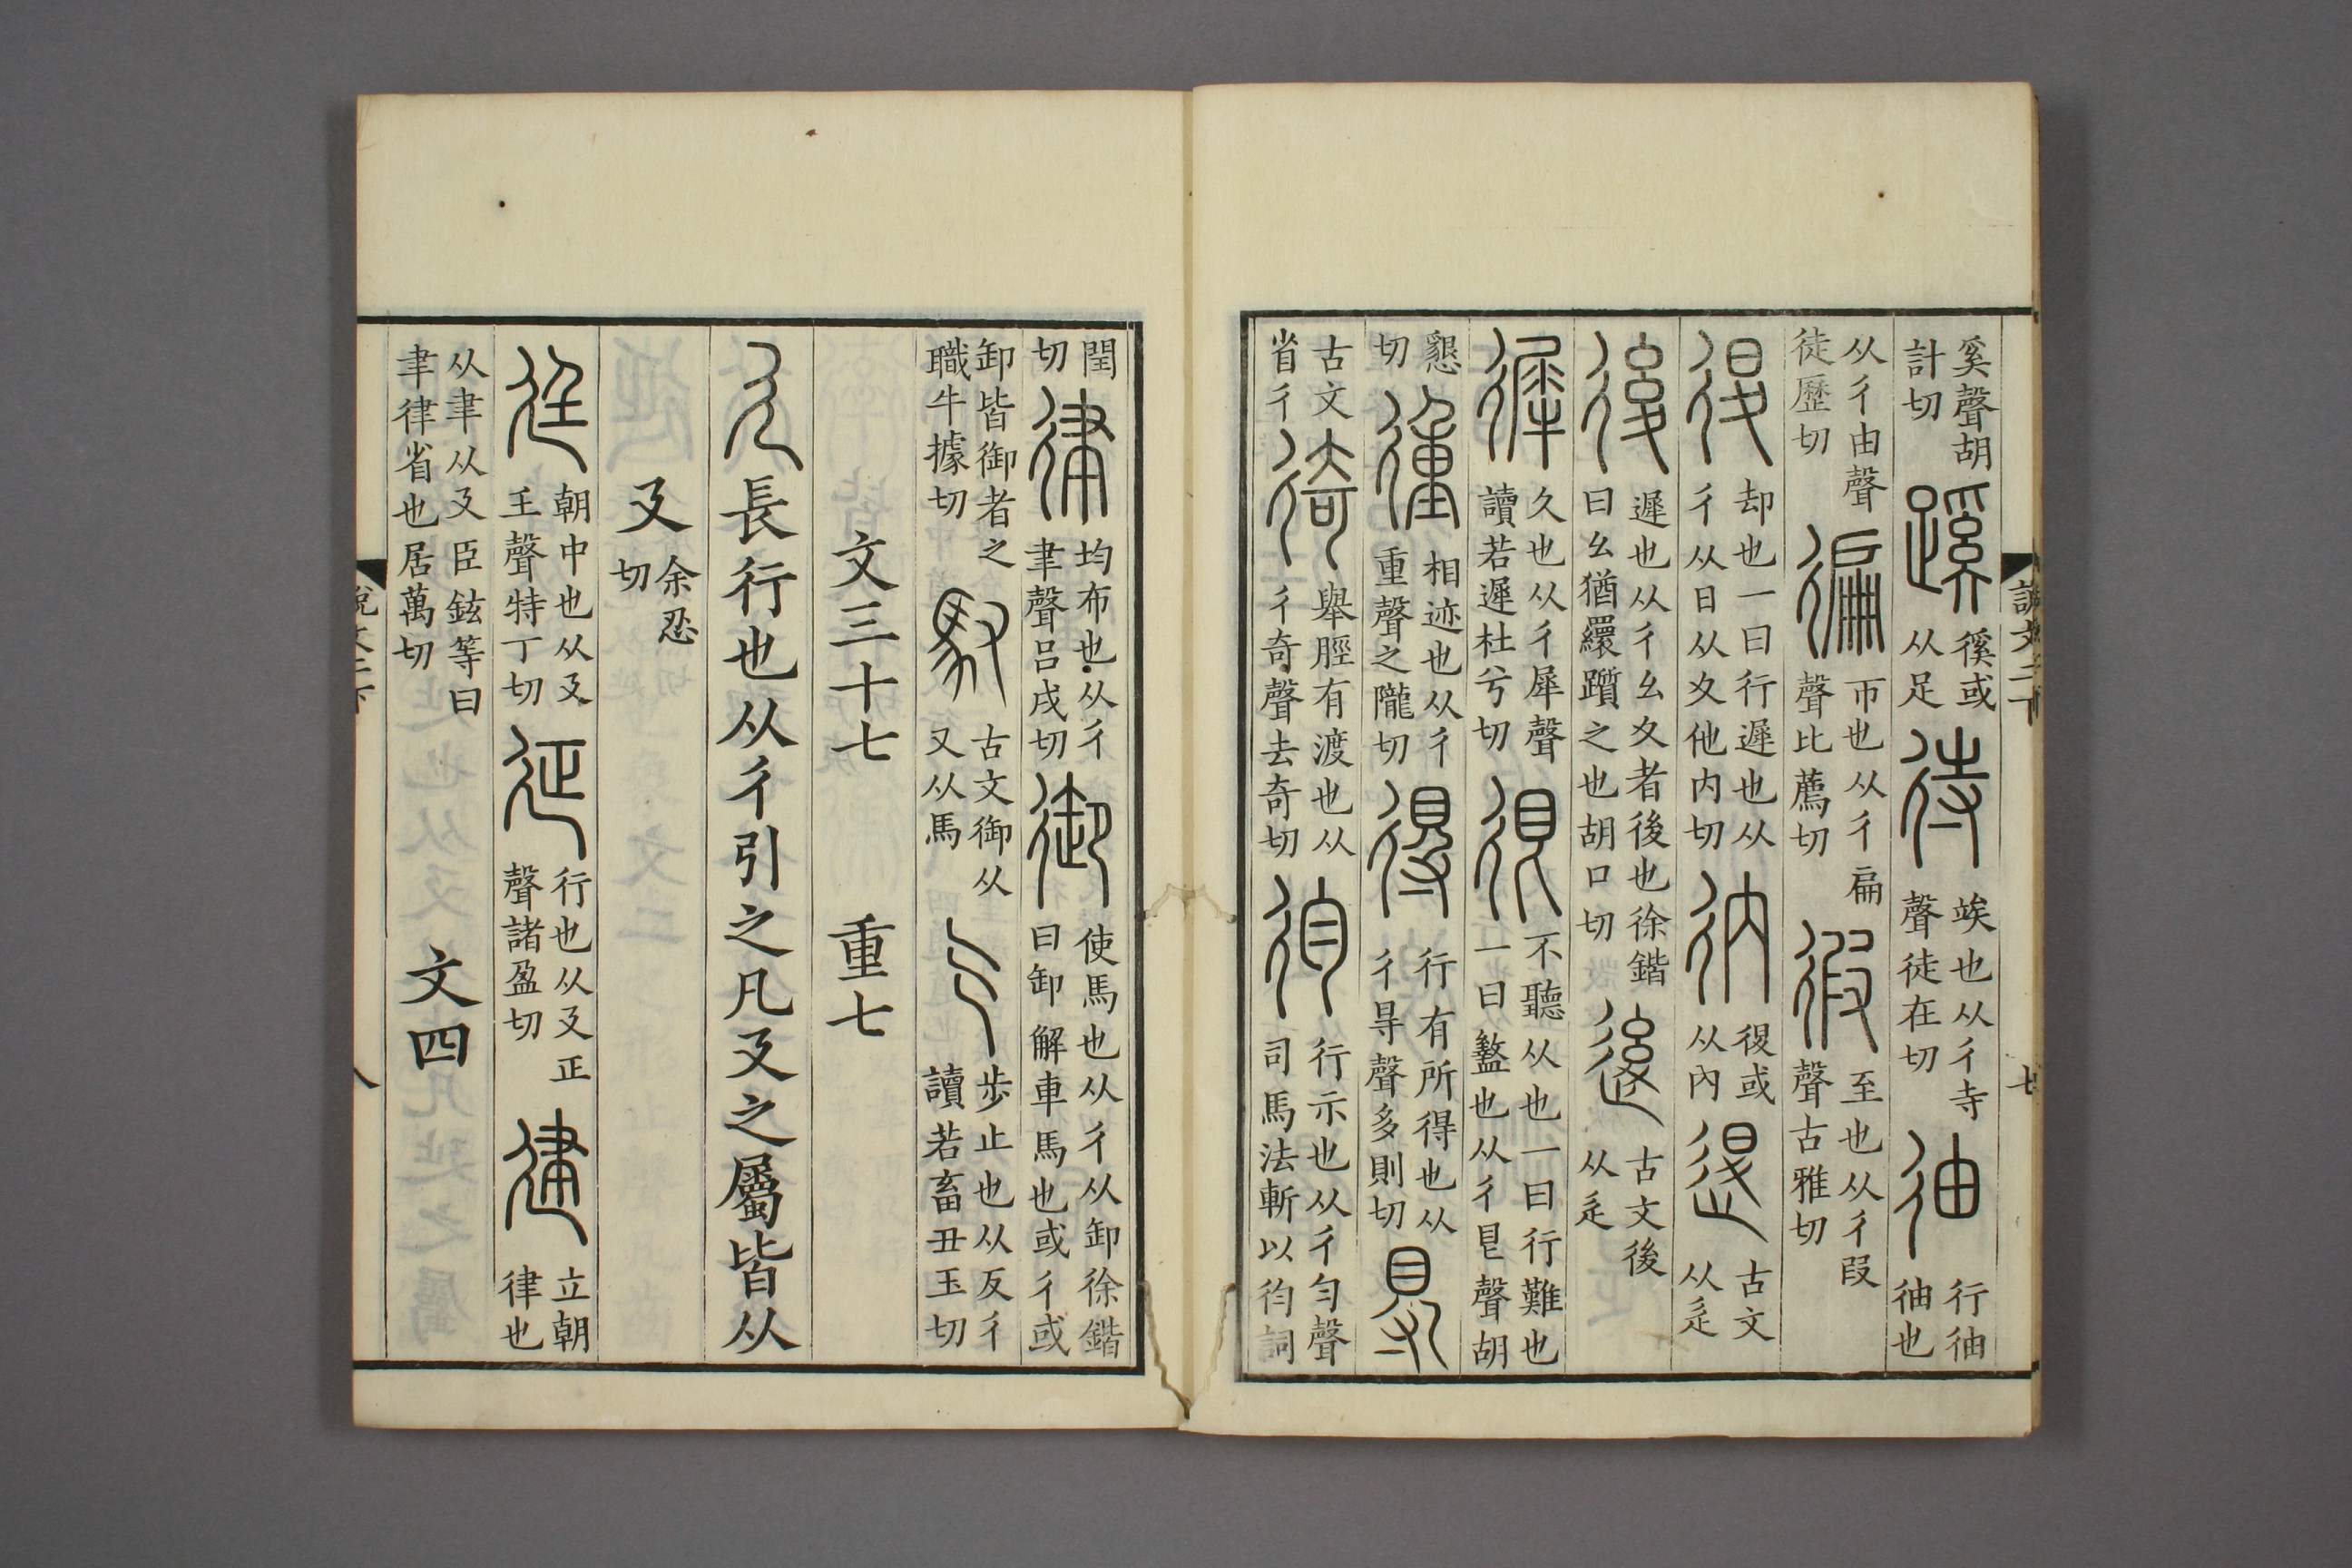 說文二下 七
奚聲胡計切 蹊 徯或从足 待 竢也从彳寺聲徒在切 㣙 行㣙㣙也
从彳由聲徒歷切 徧 帀也从彳扁聲比薦切 徦 至也从彳叚聲古雅切
復 却也一曰行遲也从彳从日从夊他内切 㣮 復或从内 退 古文从辵
後 遲也从彳幺夊者後也徐鍇曰幺猶躓之也胡口切 𨒥 古文後从辵
徲 久也从彳犀聲讀若遲杜兮切 很 不聽从也一曰行難也一曰盭也从彳皀聲胡
懇切 㣫 相迹也从彳重聲之隴切 得 行有所得也从彳㝵聲多則切 㝵
古文省彳 徛 舉脛有渡也从彳奇聲去奇切 徇 行示也从彳勻聲司馬法斬以徇詞
閏切 律 均布也从彳聿聲呂戌切 御 使馬也从彳从卸徐鍇曰卸解車馬也或彳或
卸皆御者之職牛據切 馭 古文御从又从馬 亍 步止也从反彳讀若畜丑玉切
文三十七 重七
廴 長行也从彳引之凡廴之屬皆从
廴 余忍切
廷 朝中也从廴𡈼聲特丁切 延 行也从廴正聲諸盈切 建 立朝律也
从聿从廴臣鉉等曰聿律省也居萬切 文四
說文二下 八